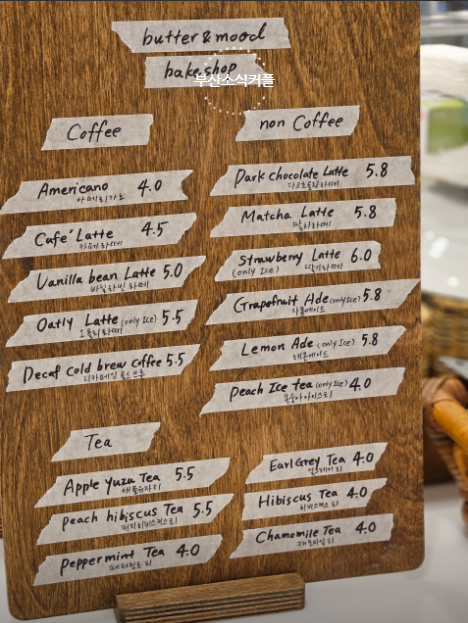 butter & mood
bake shop
부산소식커플
Coffee
Americano 4.0
아메리카노
Cafe' Latte 4.5
카페라떼
Vanilla bean Latte 5.0
바닐라빈 라떼
Oatly Latte (only Ice) 5.5
오틀리라떼
Decaf Cold brew coffee 5.5
디카페인 콜드브루
non Coffee
Dark chocolate Latte 5.8
다크초콜릿라떼
Matcha Latte 5.8
말차라떼
Strawberry Latte 6.0
(only Ice) 딸기라떼
Grapefruit Ade (only Ice) 5.8
자몽에이드
Lemon Ade (only Ice) 5.8
레몬에이드
Peach Ice tea (only Ice) 4.0
복숭아아이스티
Tea
Apple Yuzu Tea 5.5
애플유자티
peach hibiscus Tea 5.5
피치히비스커스티
peppermint Tea 4.0
페퍼민트 티
Earl Grey Tea 4.0
얼그레이 티
Hibiscus Tea 4.0
히비스커스 티
Chamomile Tea 4.0
캐모마일 티